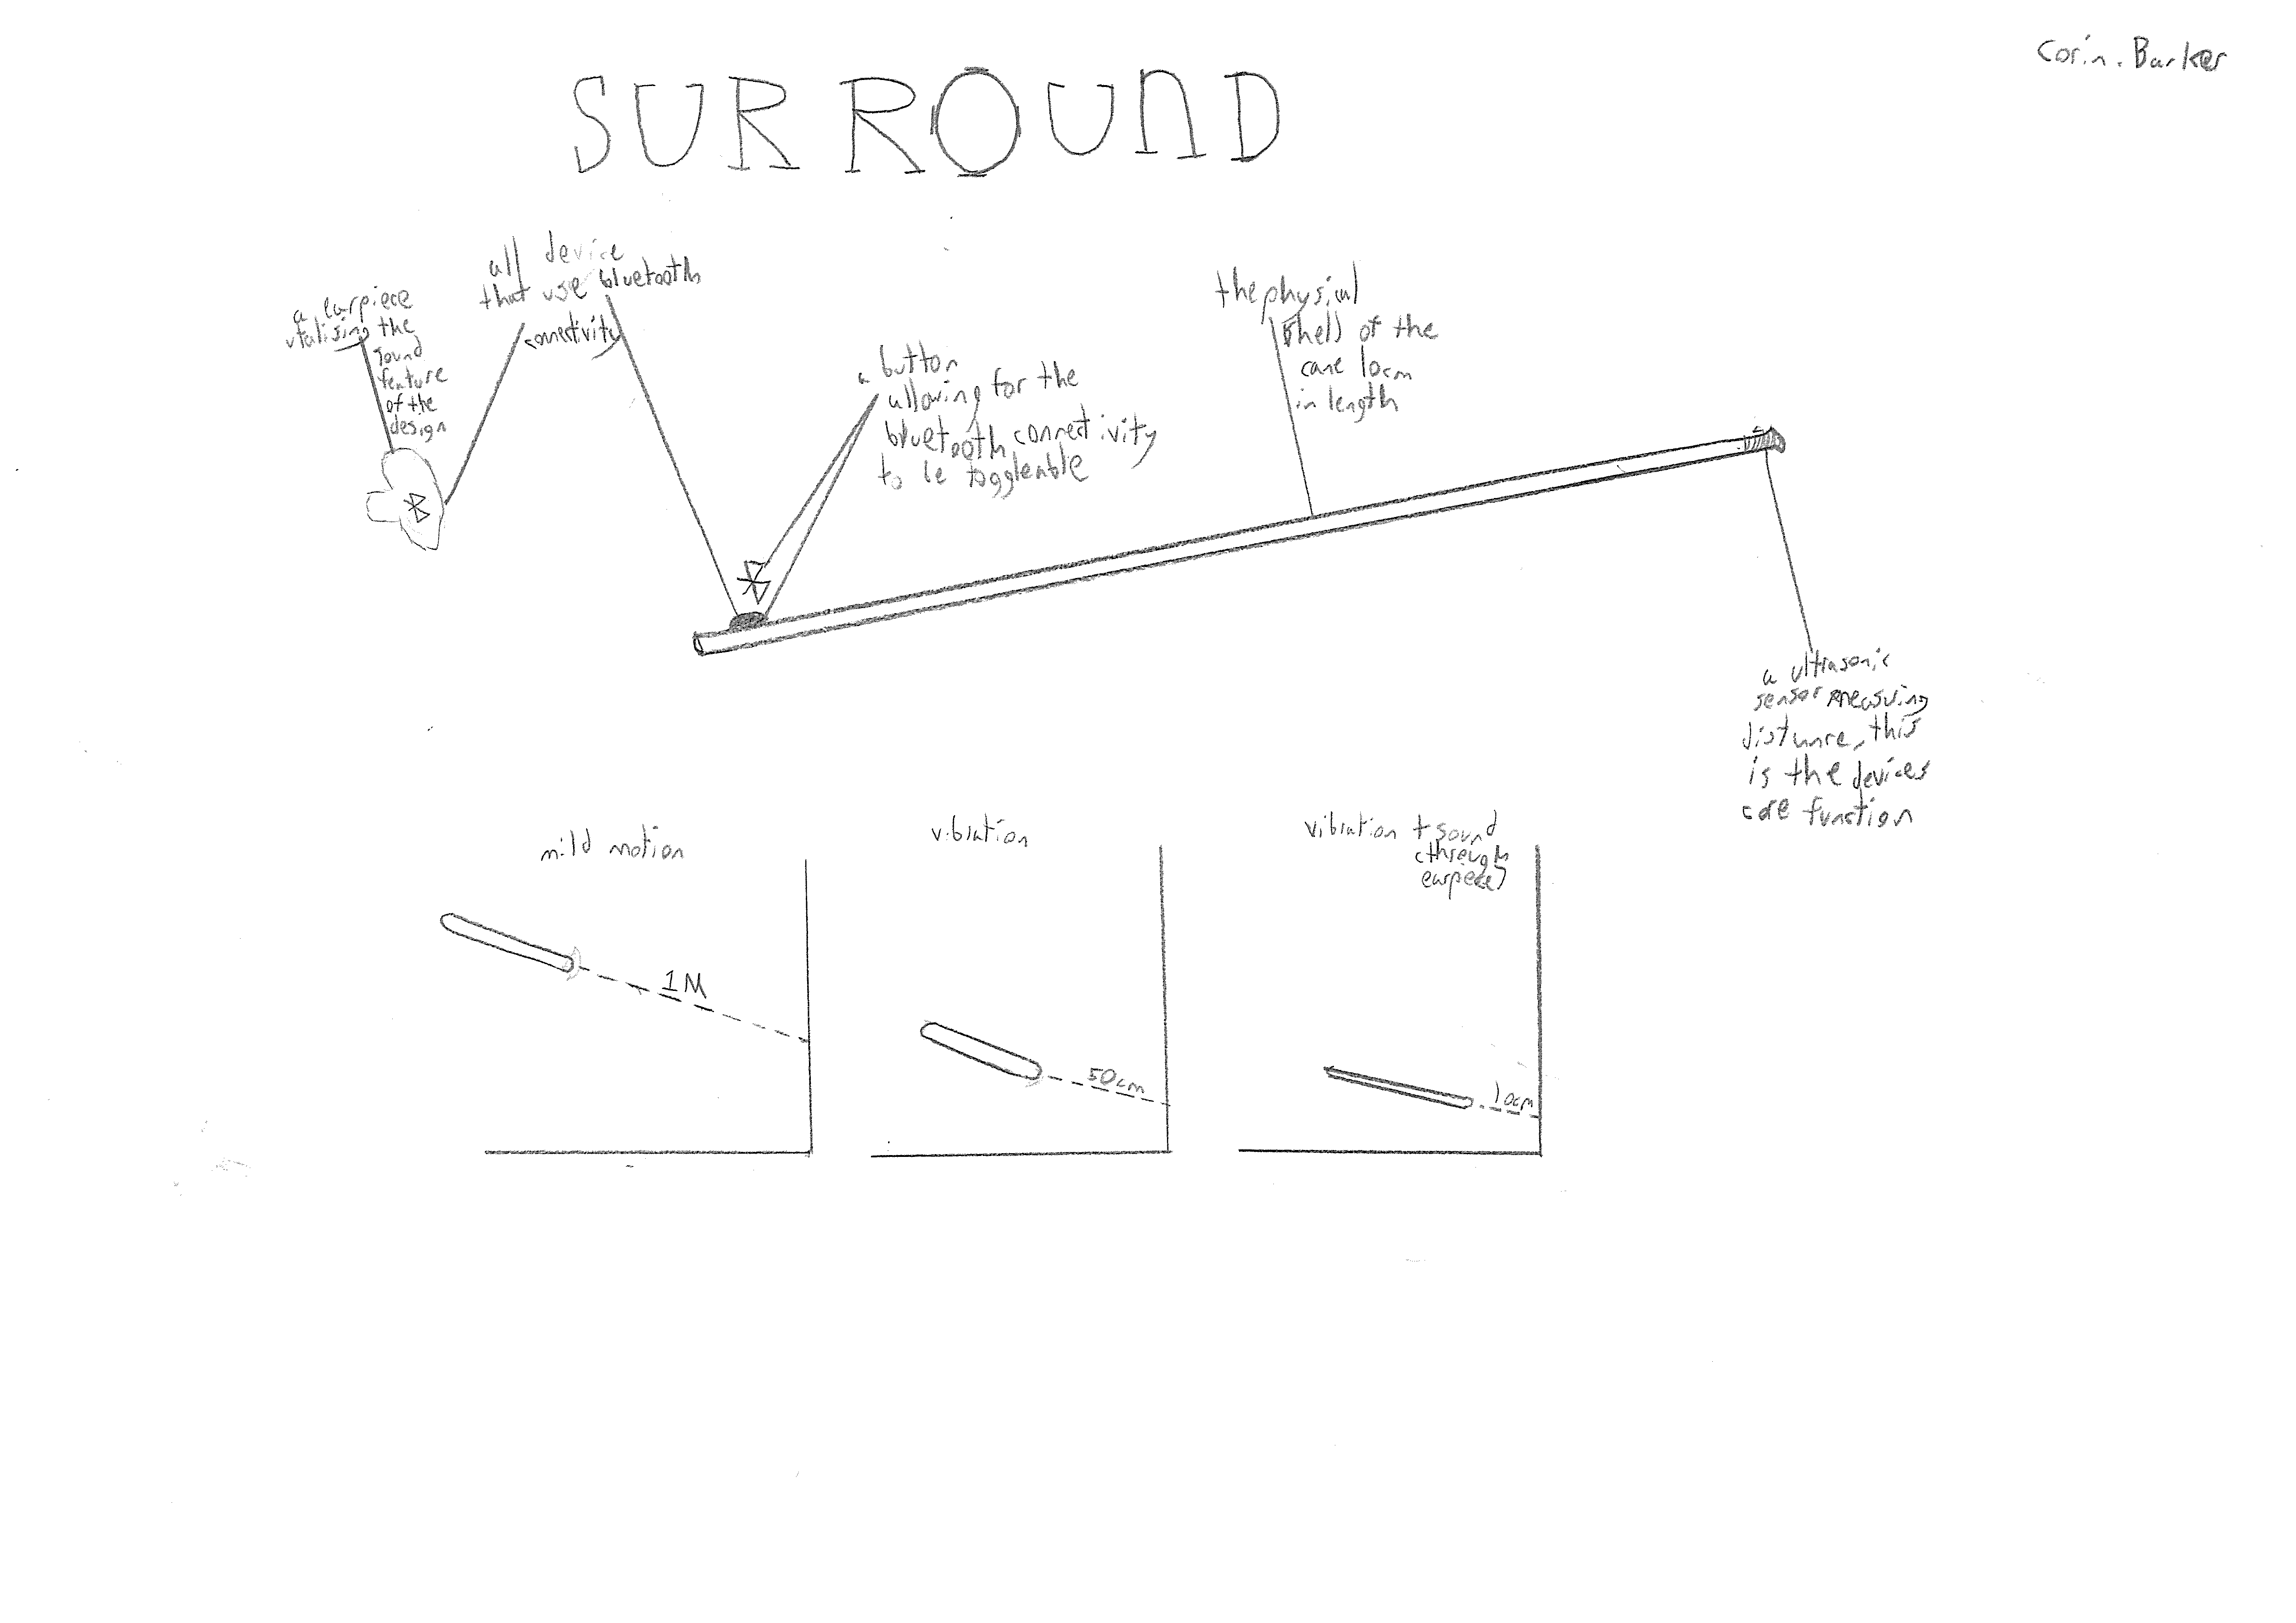 corin. Barker
SURROUND
a earpiece
utalising the
sound
feature
of the
design
all device
that use bluetooth
connectivity
a button
allowing for the
bluetooth connectivity
to be toggleable
the physical
shell of the
cane 10cm
in length
a ultrasonic
sensor measuring
distance, this
is the devices
core function
mild motion
1M
vibration
50cm
vibration + sound
(through
earpeice)
10cm